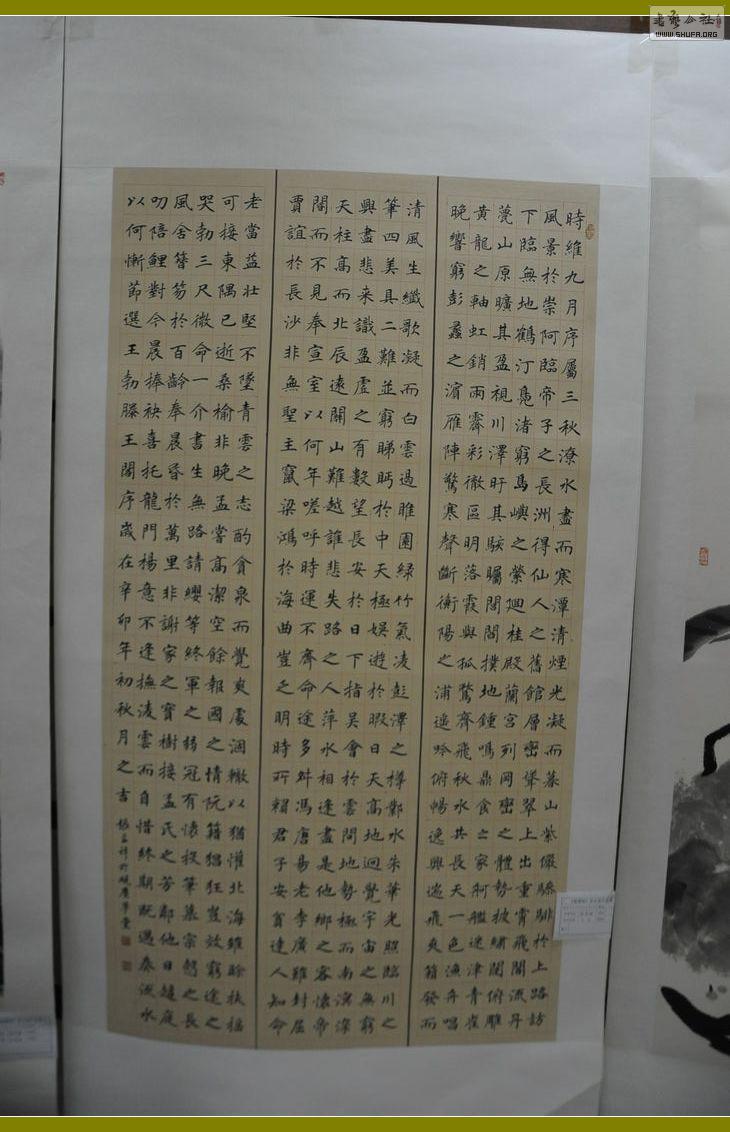 時維九月序屬三秋潦水盡而寒潭清煙光凝而暮山紫儼驂騑於上路訪
風景於崇阿臨帝子之長洲得仙人之舊館層巒聳翠上出重霄飛閣流丹
下臨無地鶴汀鳧渚窮島嶼之縈廻桂殿蘭宮列岡巒之體勢披繡闥俯雕
甍山原曠其盈視川澤盱其駭矚閭閻撲地鍾鳴鼎食之家舸艦迷津青雀
黃龍之軸虹銷雨霽彩徹區明落霞與孤鶩齊飛秋水共長天一色漁舟唱
晚響窮彭蠡之濱雁陣驚寒聲斷衡陽之浦遙吟俯暢逸興遄飛爽籟發而
清風生纖歌凝而白雲遏睢園綠竹氣凌彭澤之樽鄴水朱華光照臨川之
筆四美具二難並窮睇眄於中天極娛遊於暇日天高地迥覺宇宙之無窮
興盡悲来識盈虛之有數望長安於日下指吳會於雲間地勢極而南溟深
天柱高而北辰遠關山難越誰悲失路之人萍水相逢盡是他鄉之客懷帝
閽而不見奉宣室以何年嗟呼時運不齊命途多舛馮唐易老李廣難封屈
賈誼於長沙非無聖主竄梁鴻於海曲豈乏明時所賴君子安貧達人知命
老當益壯堅不墜青雲之志酌貪泉而覺爽處涸轍以猶懽北海雖賒扶搖
可接東隅已逝桑榆非晚孟嘗高潔空餘報國之情阮籍猖狂豈效窮途之
哭勃三尺微命一介書生無路請纓等終軍之弱冠有懷投筆慕宗愨之長
風舍簪笏於百齡奉晨昏於萬里非謝家之寶樹接孟氏之芳鄰他日趨庭
叨陪鯉對今晨捧袂喜托龍門楊意不逢撫凌雲而自惜終期既遇奏流水
以何慚節選王勃滕王閣序歲在辛卯年初秋月之吉
WWW.SHUFA.ORG